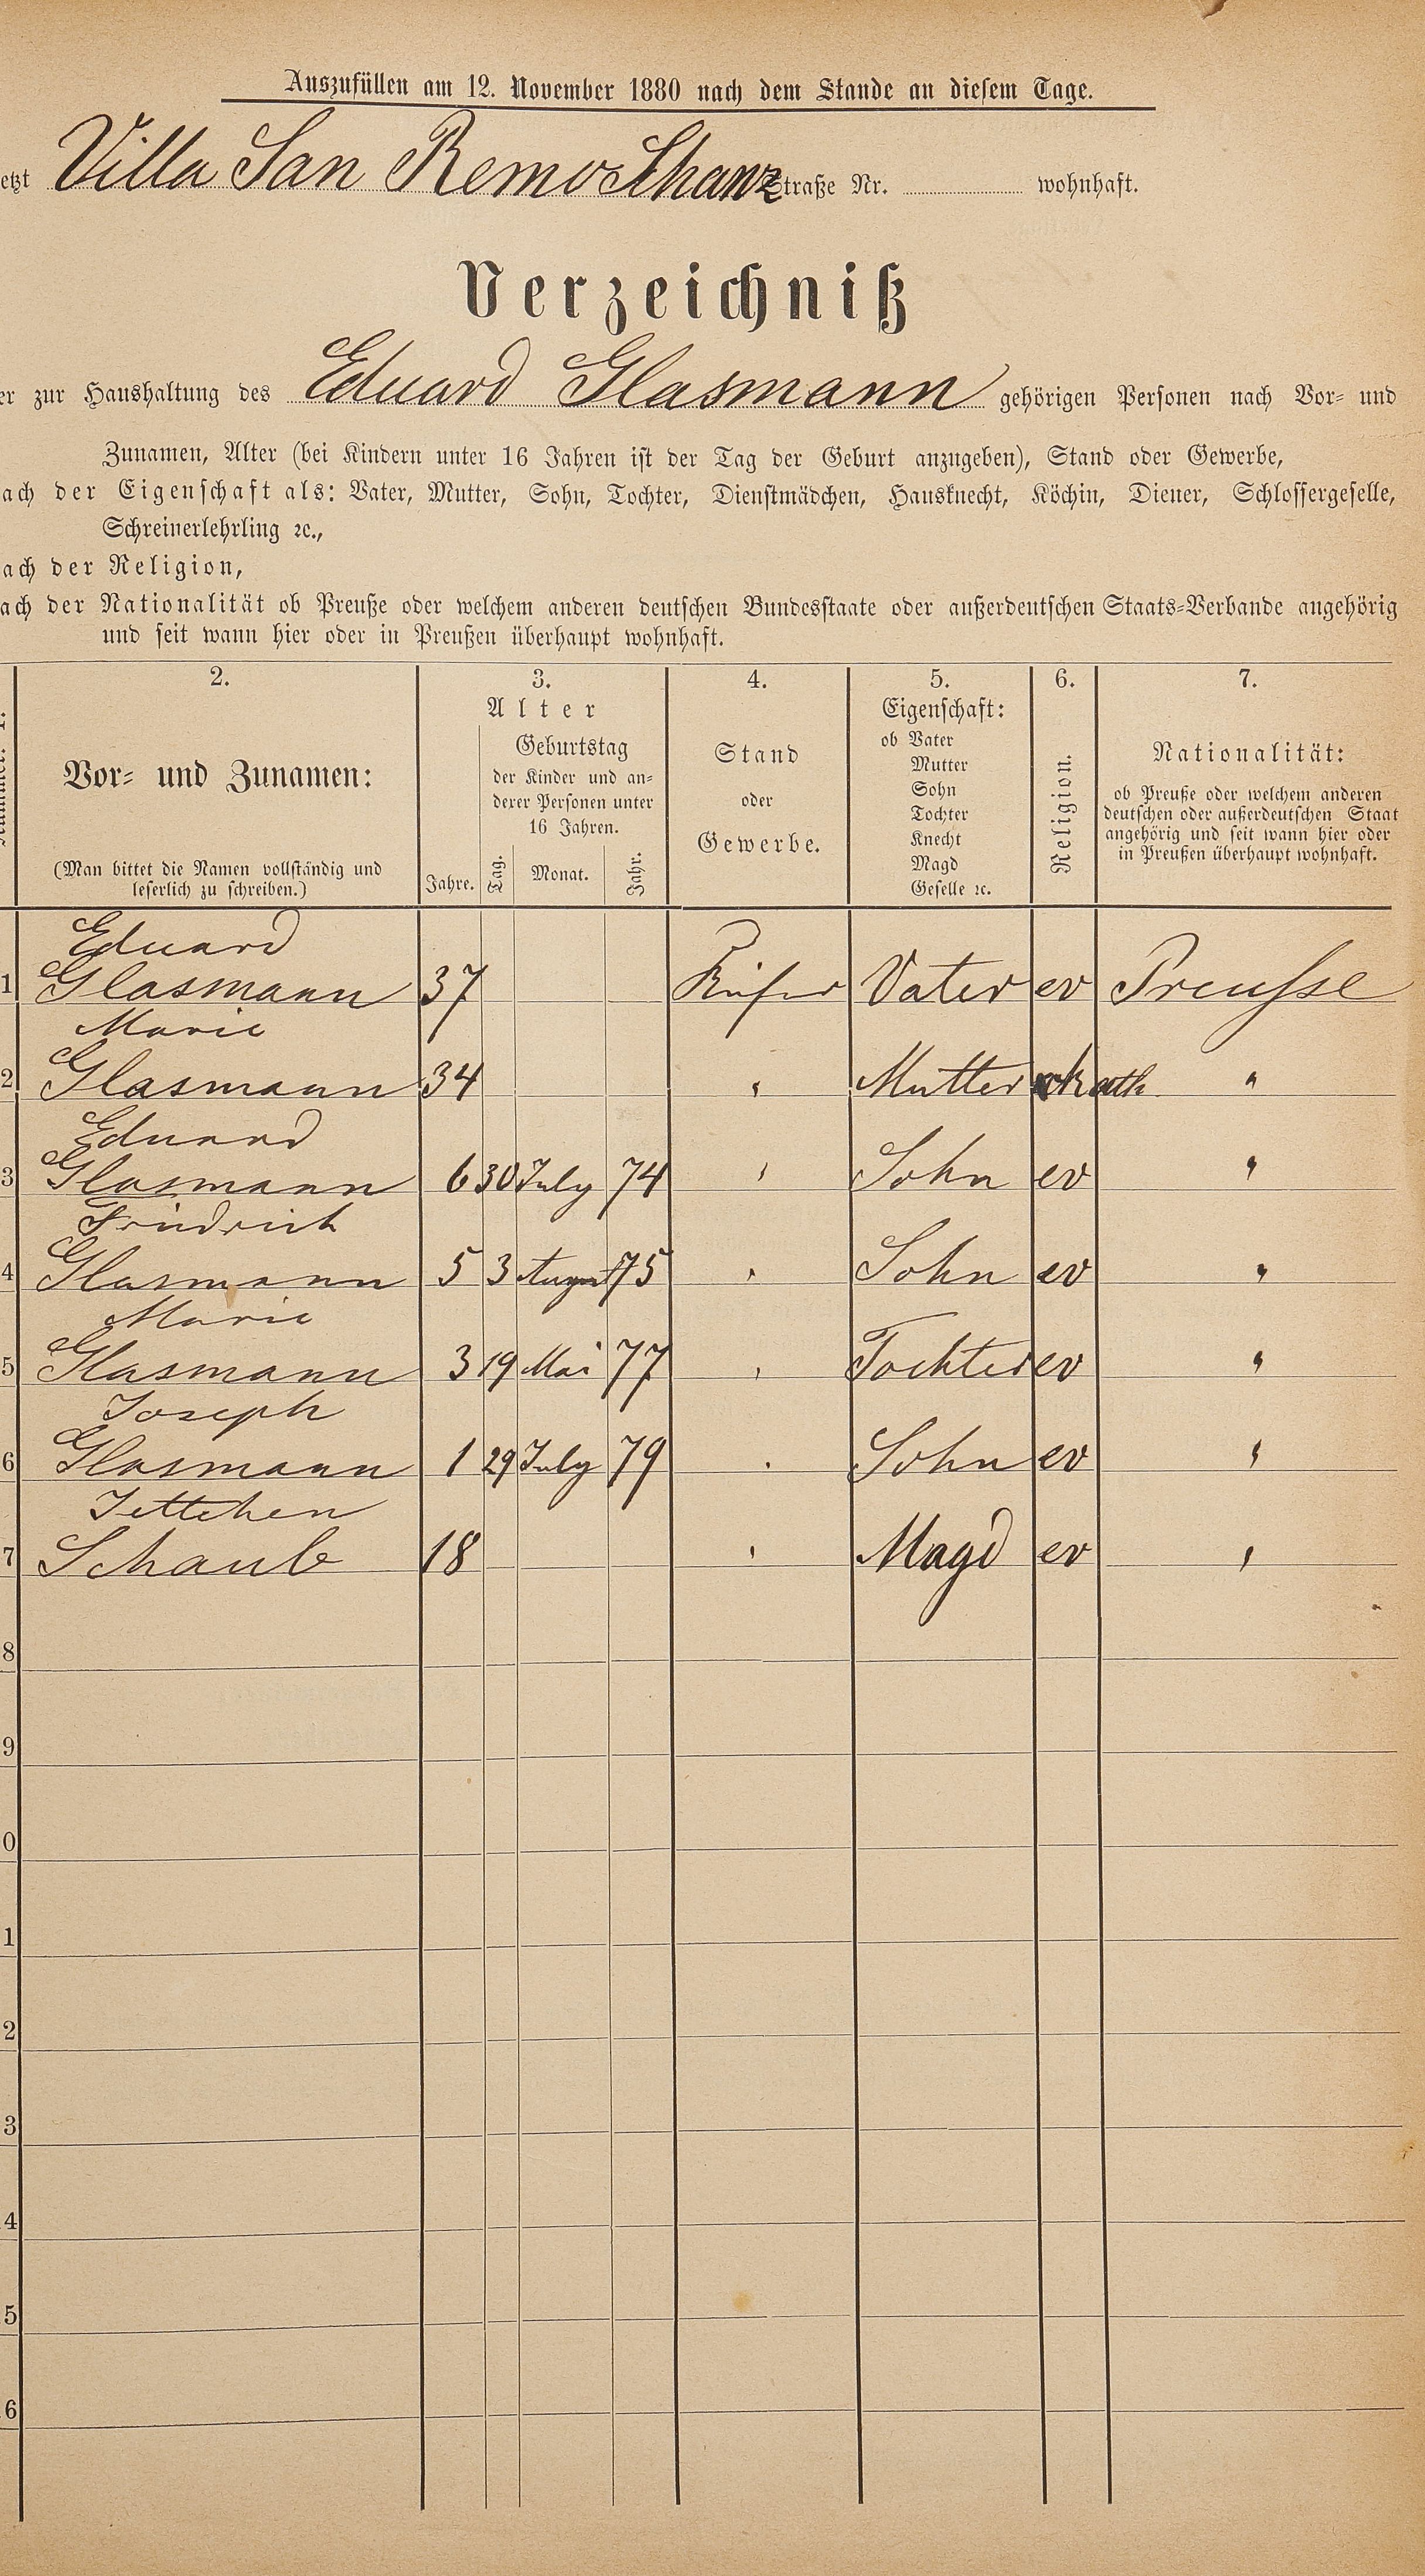 Auszufüllen am 12. November 1880 nach dem Stande an diesem Tage.
etzt Villa San Remo Schanzstraße Nr. wohnhaft.
Verzeichniß
er zur Haushaltung des Eduard Glasmann gehörigen Personen nach Vor= und
Zunamen, Alter (bei Kindern unter 16 Jahren ist der Tag der Geburt anzugeben), Stand oder Gewerbe,
ach der Eigenschaft als: Vater, Mutter, Sohn, Tochter, Dienstmädchen, Hausknecht, Köchin, Diener, Schlossergeselle,
Schreinerlehrling ꝛc.,
ach der Religion,
ach der Nationalität ob Preuße oder welchem anderen deutschen Bundesstaate oder außerdeutschen Staats=Verbande angehörig
und seit wann hier oder in Preußen überhaupt wohnhaft.
2. 3. 4. 5. 6. 7.
Vor= und Zunamen:
(Man bittet die Namen vollständig und
leserlich zu schreiben.)
Alter
Jahre.
Geburtstag
der Kinder und an=
derer Personen unter
16 Jahren.
Tag. Monat. Jahr.
Stand
oder
Gewerbe.
Eigenschaft:
ob Vater
Mutter
Sohn
Tochter
Knecht
Magd
Geselle ꝛc.
Religion.
Nationalität:
ob Preuße oder welchem anderen
deutschen oder außerdeutschen Staat
angehörig und seit wann hier oder
in Preußen überhaupt wohnhaft.
Eduard
1 Glasmann 37 Küfer Vater ev Preusse
Marie
2 Glasmann 34 " Mutter kath. "
Eduard
3 Glasmann 6 30 July 74 " Sohn ev "
Friedrich
4 Glasmann 5 3 August 75 " Sohn ev "
Marie
5 Glasmann 3 19 Mai 77 " Tochter ev "
Joseph
6 Glasmann 1 29 July 79 " Sohn ev "
Jettchen
7 Schaub 18 " Magd ev "
8
9
0
1
2
3
4
5
6